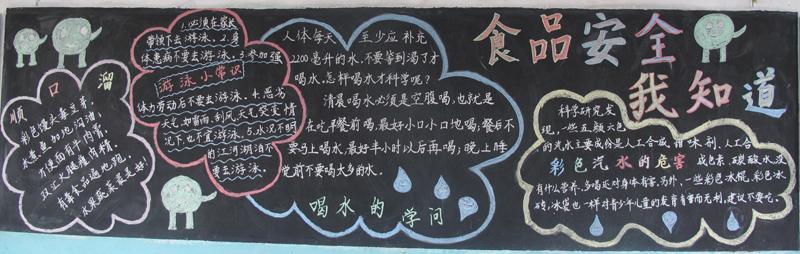 食品安全
我知道
顺口溜
彩色馒头毒豆芽，
水煮鱼加地沟油，
方便面有牛肉膏，
双汇火腿瘦肉精，
有毒食品遍地现，
1.必须在家长
带领下去游泳。2.身
体患病不要去游泳。3.参加强
游泳小常识
体力劳动后不要去游泳。4.恶劣
天气如雷雨、刮风天气突变情
况下，也不宜游泳。5.水况不明
的江河湖泊不
要去游泳。
人体每天 至少应补充
2200毫升的水，不要等到渴了才
喝水，怎样喝水才科学呢？
清晨喝水必须是空腹喝，也就是
在吃早餐前喝，最好小口小口地喝；餐后不
要马上喝水，最好半小时以后再喝；晚上睡
觉前不要喝太多的水。
喝水的学问
科学研究发
现，一些五颜六色
的汽水主要成份是人工合成 甜味剂、人工合
彩色汽水的危害
成色素、碳酸水，没
有什么营养，多喝还对身体有害。另外，一些彩色冰棍、彩色冰
砖、冰袋也一样对青少年儿童的发育有害而无利，建议不要吃。